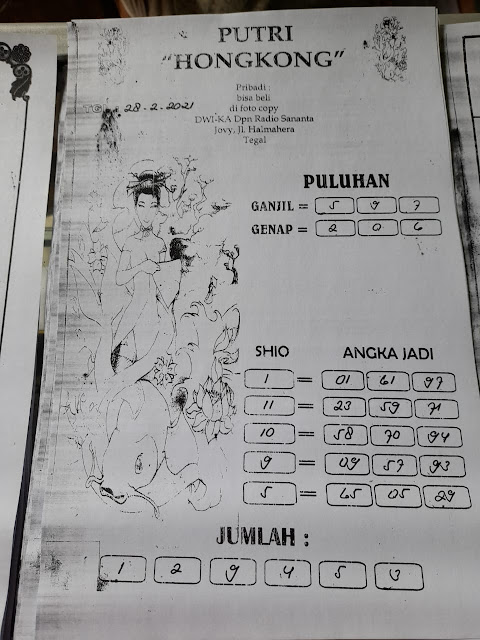 PUTRI
"HONGKONG"
Pribadi :
bisa beli
di foto copy
DWI-KA Dpn Radio Sananta
Jovy, Jl. Halmahera
Tegal
TG 28-2-2021
PULUHAN
GANJIL = 5 9 7
GENAP = 2 0 6
SHIO ANGKA JADI
1 = 01 61 97
11 = 23 59 71
10 = 58 70 94
9 = 09 57 93
5 = 65 05 29
JUMLAH :
1 2 9 4 5 3